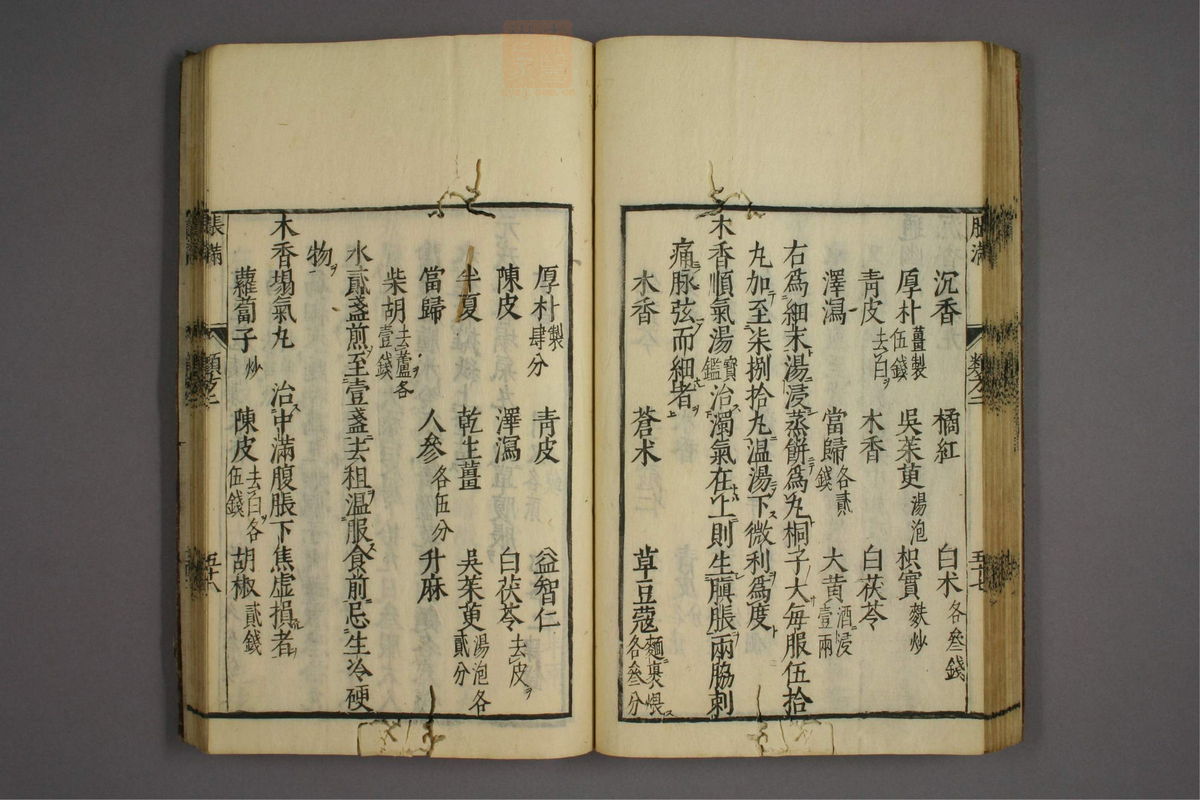 脹滿 類之二 五十七
沉香 橘紅 白朮各叄錢
厚朴薑製伍錢 吳茱萸湯泡 枳實麩炒
青皮去白 木香 白茯苓
澤瀉 當歸各貳錢 大黃酒浸壹兩
右爲細末湯浸蒸餅爲丸桐子大每服伍拾
丸加至柒捌拾丸溫湯下微利爲度
木香順氣湯寶鑑治濁氣在上則生䐜脹兩脇刺
痛脉弦而細者
木香 蒼朮 草豆蔻麵裹煨各叄分
厚朴製肆分 青皮 益智仁
陳皮 澤瀉 白茯苓去皮
半夏 乾生薑 吳茱萸湯泡各貳分
當歸 人參各伍分 升麻
柴胡去蘆各壹錢
水貳盞煎至壹盞去柤溫服食前忌生冷硬
物
木香塌氣丸 治中滿腹脹下焦虛損者
蘿蔔子炒 陳皮去白各伍錢 胡椒貳錢
脹滿 類之二 五十八